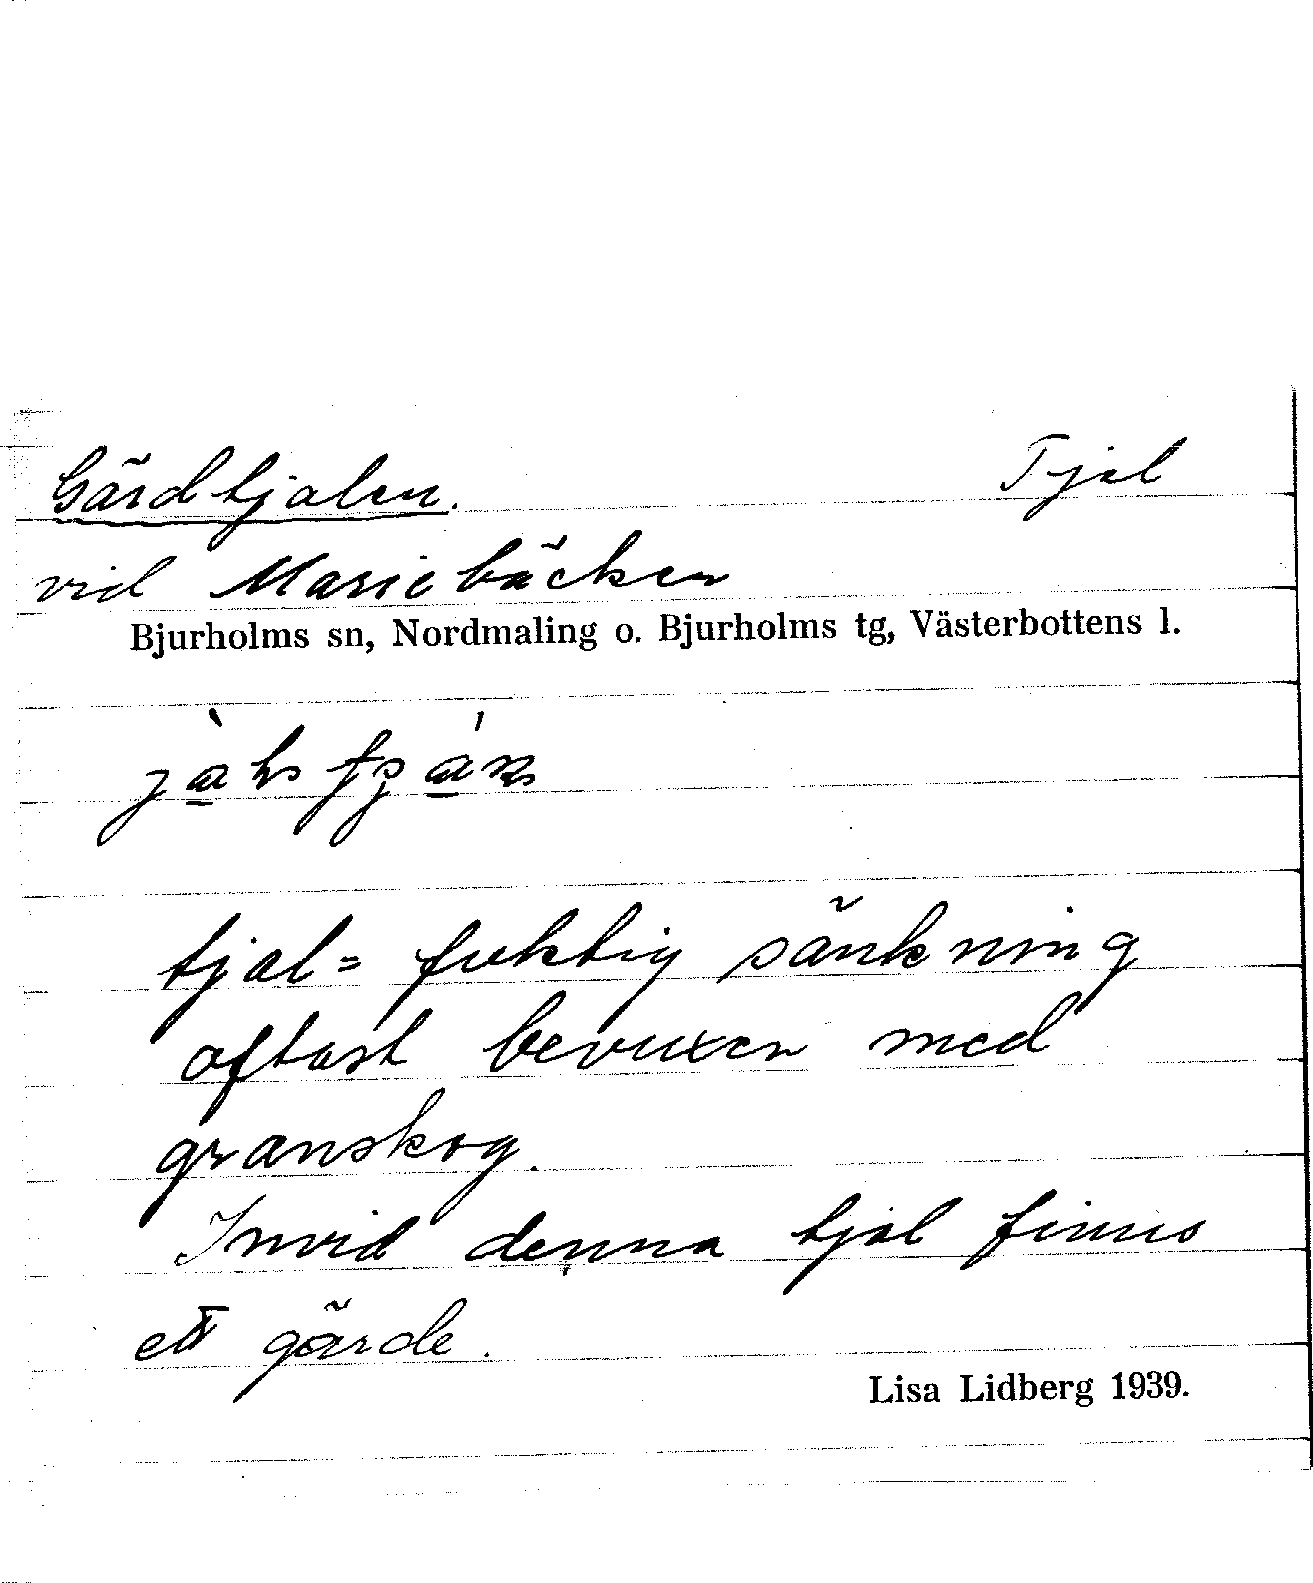 Gärdtjalen. Tjal
vid Mariebäcken
Bjurholms sn, Nordmaling o. Bjurholms tg, Västerbottens l.
tjal= fuktig sänkning
oftast bevuxen med
granskog.
Invid denna tjal finns
ett gärde.
Lisa Lidberg 1939.